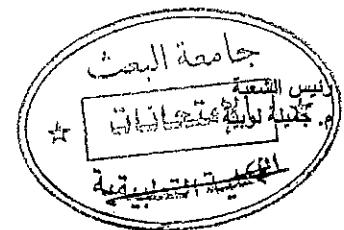 جامعة البعث
رئيس الشعبة
م. جميلة لوليثة
امتحانات
الكلية التطبيقية